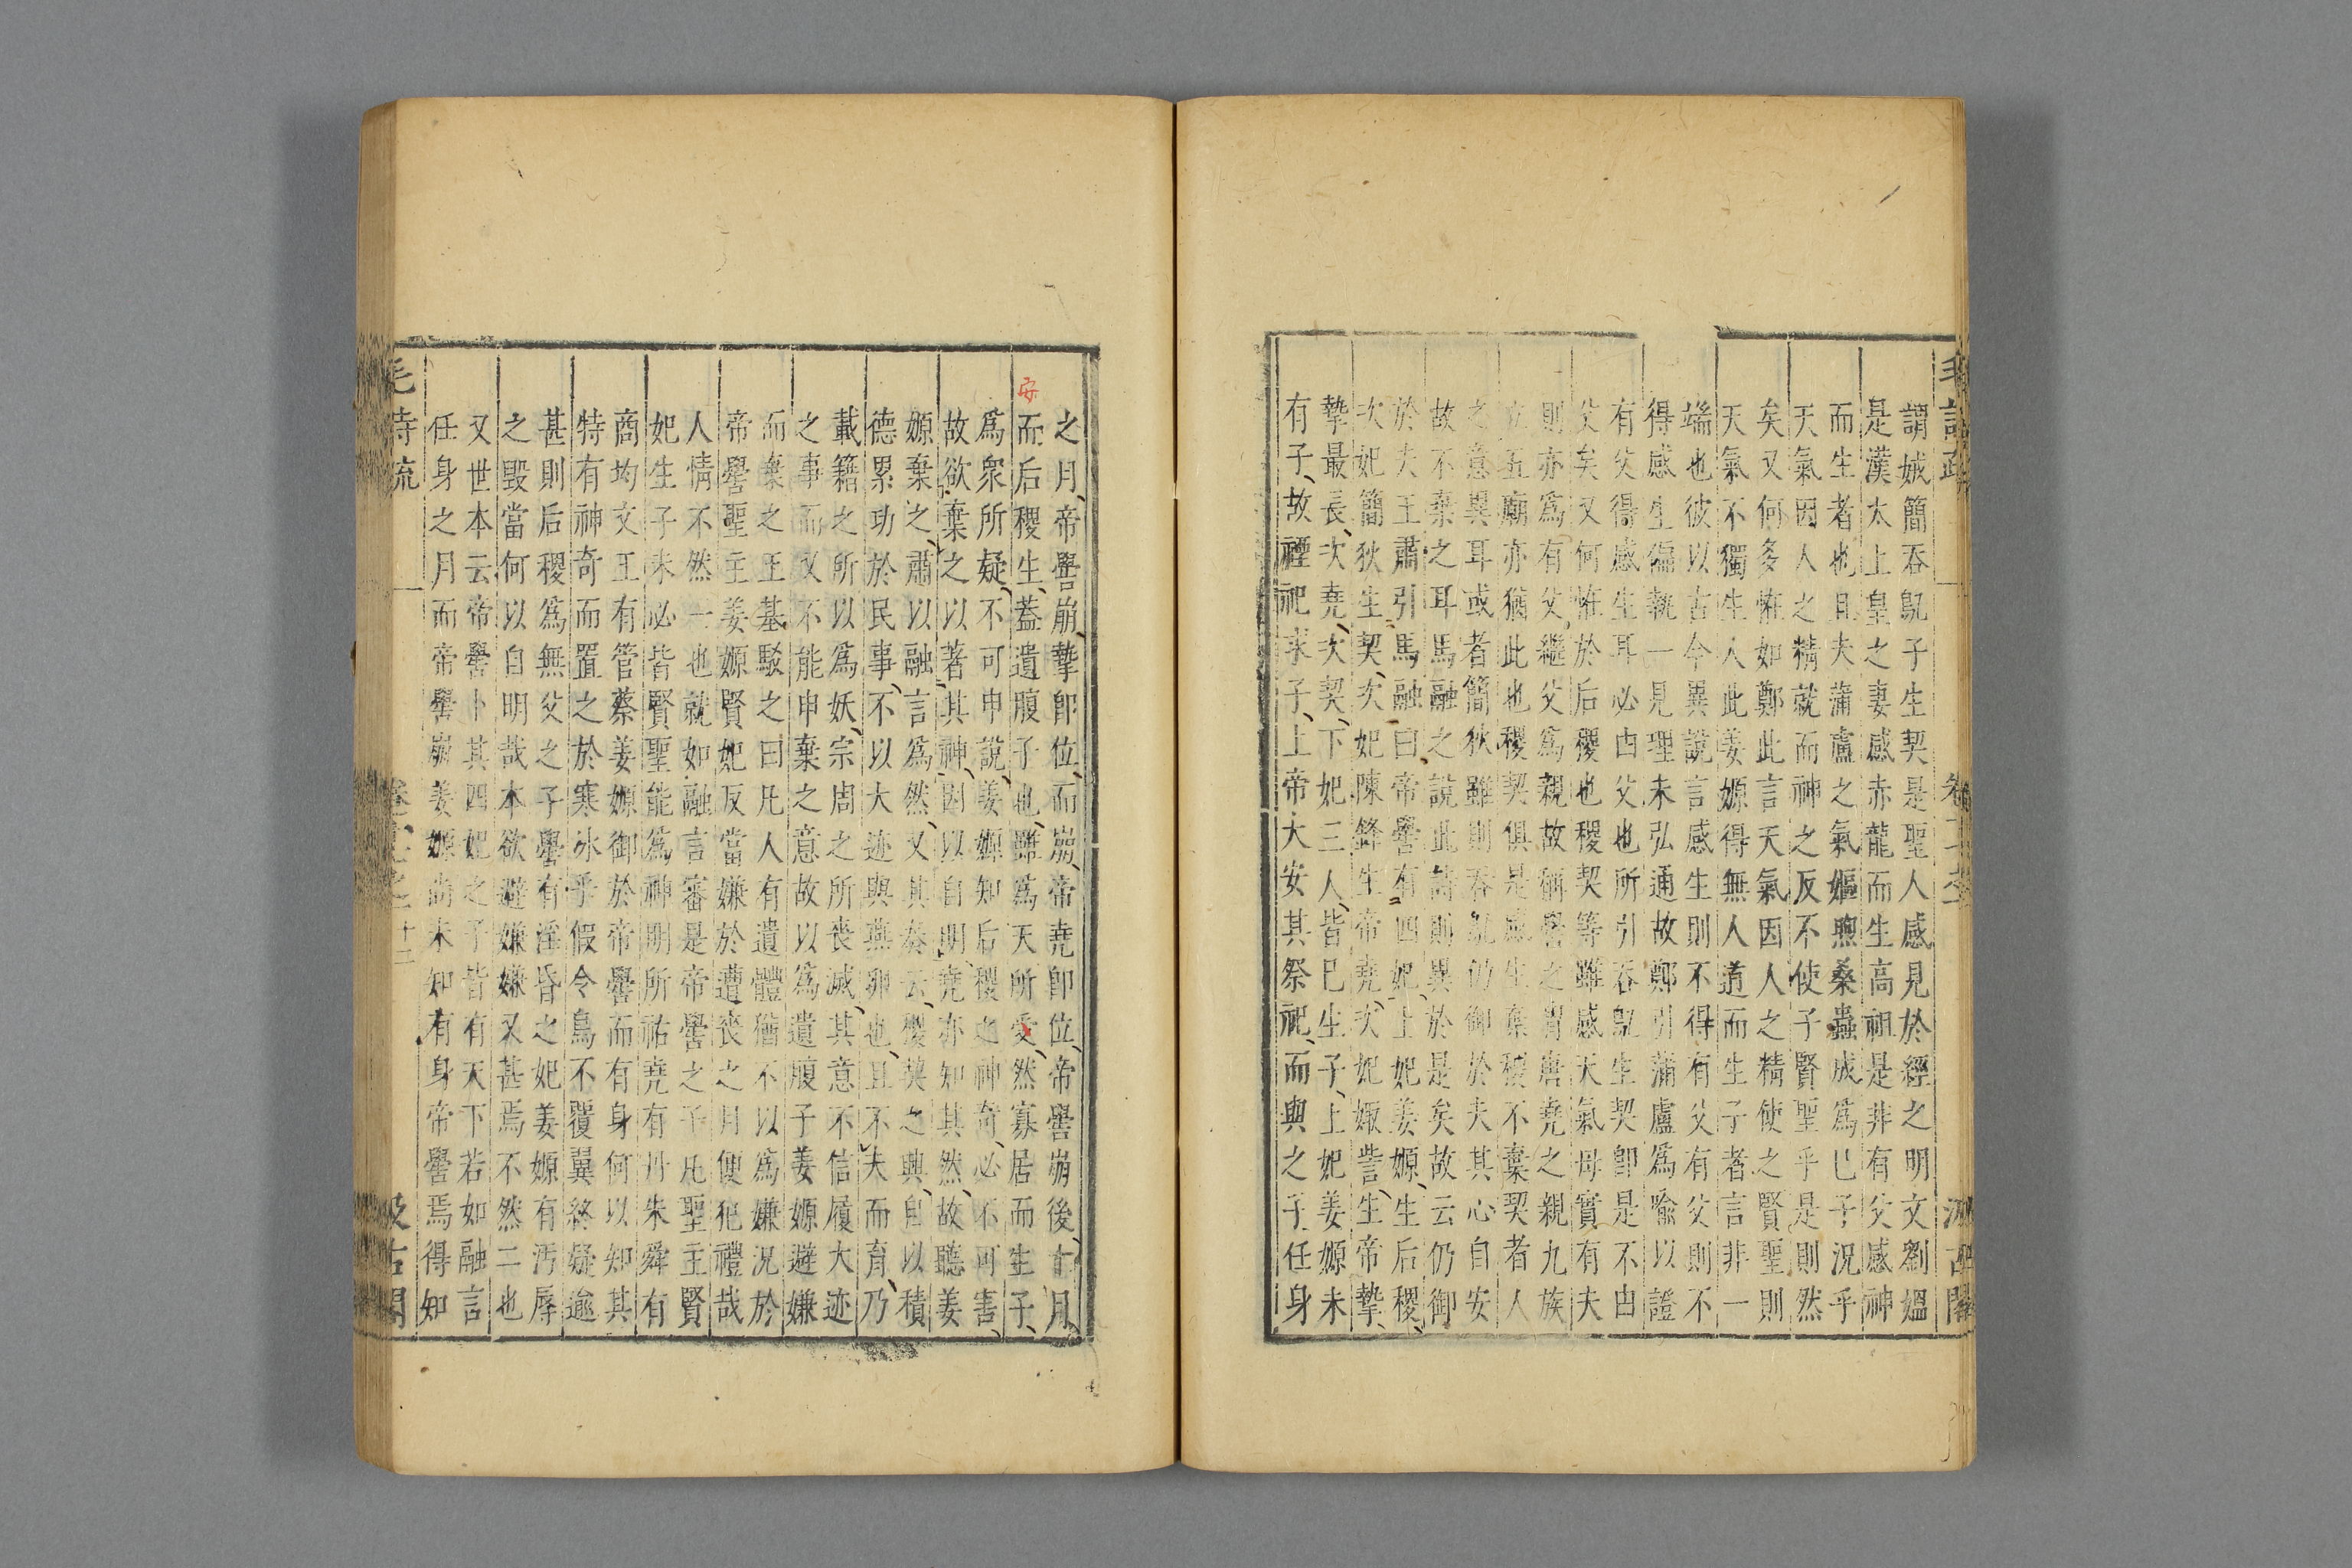 謂娀簡吞鳦子生契是聖人感見於經之明文劉媪
是漢太上皇之妻感赤龍而生高祖是非有父感神
而生者也且夫蒲盧之氣嫗煦桑蟲成爲巳子況乎
天氣因人之精就而神之反不使子賢聖乎是則然
矣又何多怪如鄭此言天氣因人之精使之賢聖則
天氣不獨生人此姜嫄得無人道而生子者言非一
端也彼以古今異說言感生則不得有父有父則不
得感生偏執一見理未弘通故鄭引蒲盧爲喩以證
有父得感生耳必由父也所引吞鳦生契卽是不由
父矣又何怪於后稷也稷契等雖感天氣母實有夫
則亦爲有父繼父爲親故稱嚳之胄唐堯之親九族
立五廟亦猶此也稷契俱是感生棄稷不棄契者人
之意異耳或者簡狄雖則吞鳦仍御於夫其心自安
故不棄之耳馬融之說此詩則異於是矣故云仍御
於夫王肅引馬融曰帝嚳有四妃上妃姜嫄生后稷
次妃簡狄生契次妃陳鋒生帝堯次妃娵訾生帝摯
摯最長次堯次契下妃三人皆巳生子上妃姜嫄未
有子故禋祀求子上帝大安其祭祀而與之子任身
之月帝嚳崩摯卽位而崩帝堯卽位帝嚳崩後十月
而后稷生蓋遺腹子也雖爲天所安然寡居而生子
爲衆所疑不可申說姜嫄知后稷之神奇必不可害
故欲棄之以著其神因以自明堯亦知其然故聽姜
嫄棄之肅以融言爲然又其奏云稷契之興自以積
德累功於民事不以大迹與燕卵也且不夫而育乃
載籍之所以爲妖宗周之所喪滅其意不信履大迹
之事而又不能申棄之意故以爲遺腹子姜嫄避嫌
而棄之王基駁之曰凡人有遺體猶不以爲嫌況於
帝嚳聖主姜嫄賢妃反當嫌於遭喪之月便犯禮哉
人情不然一也就如融言審是帝嚳之子凡聖主賢
妃生子未必皆賢聖能爲神明所祐堯有丹朱舜有
商均文王有管蔡姜嫄御於帝嚳而有身何以知其
特有神奇而置之於寒冰乎假令鳥不覆翼終疑逾
甚則后稷爲無父之子嚳有淫昏之妃姜嫄有汚辱
之毀當何以自明哉本欲避嫌嫌又甚焉不然二也
又世本云帝嚳卜其四妃之子皆有天下若如融言
任身之月而帝嚳崩姜嫄尚未知有身帝嚳焉得知